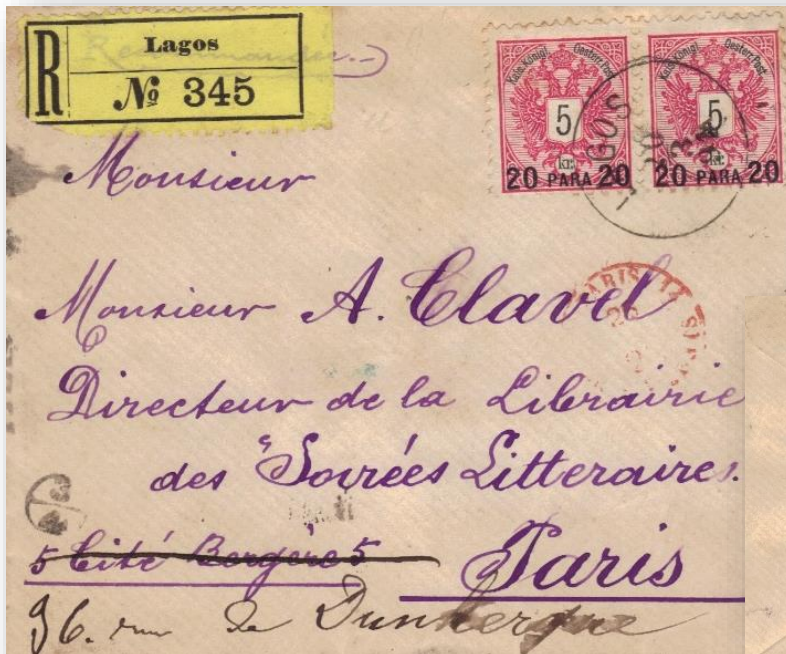 R
Lagos
Recommandée
№ 345
Kais. Königl. Oesterr. Post
5
kr.
20 PARA 20
Kais. Königl. Oesterr. Post
5
kr.
20 PARA 20
LAGOS
Monsieur
Monsieur A. Clavel
PARIS
Directeur de la Librairie
des "Soirées Litteraires.
5 Cité Bergère 5
Paris
96. rue de Dunkerque